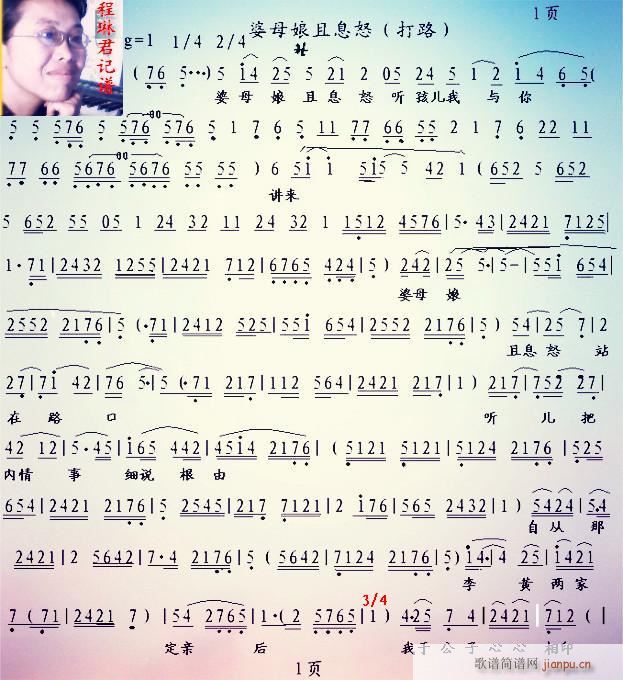 1页
程琳君记谱
g=1 1/4 2/4 婆母娘且息怒（打路）
サ
( 76 5··· ) 5 i4 25 5 21 2 05 5 1 2 i 4 6 5(
婆母娘且息怒听孩儿我与你
5 5 576 5 576 576 5 1 7 6 5 11 77 66 55 2 1 7 6 22 11
77 66 5676 5676 55 55 ) 6 5i i 515 5 42 1 ( 652 5 652
讲来
5 652 55 05 1 24 32 11 24 32 1 1512 4576|5· 43|2421 7125|
1·71|2432 1255|2421 712|6765 424|5 ) 242|25 5·|5-|55i 654|
婆母娘
2552 2176|5 (·71|2412 525|55i 654|2552 2176|5 ) 54|25 7|2
且息怒站
27|7i 42|76 5·|5 (·71 217|112 564|2421 217|1 ) 217|752 27|
在路口听儿把
42 12|5·45|i65 442|45i4 2176|(5121 5121|5121 5124 2176|525
内情事细说根由
654|2421 2176|5 2545|217 7121|2 176|565 2432|1 ) 5424|5·4
自从那
2421|2 5642|7·4 2176|5 (5642|7124 2176|5 ) i4·|4 25|i421
李黄两家
7 (71|2421 7 ) |54 2765|1·(2 5765|1 ) 4·25 7 4|2421|712 (|
3/4
定亲后我于公子心心相印
1页
歌谱简谱网
jianpu.cn